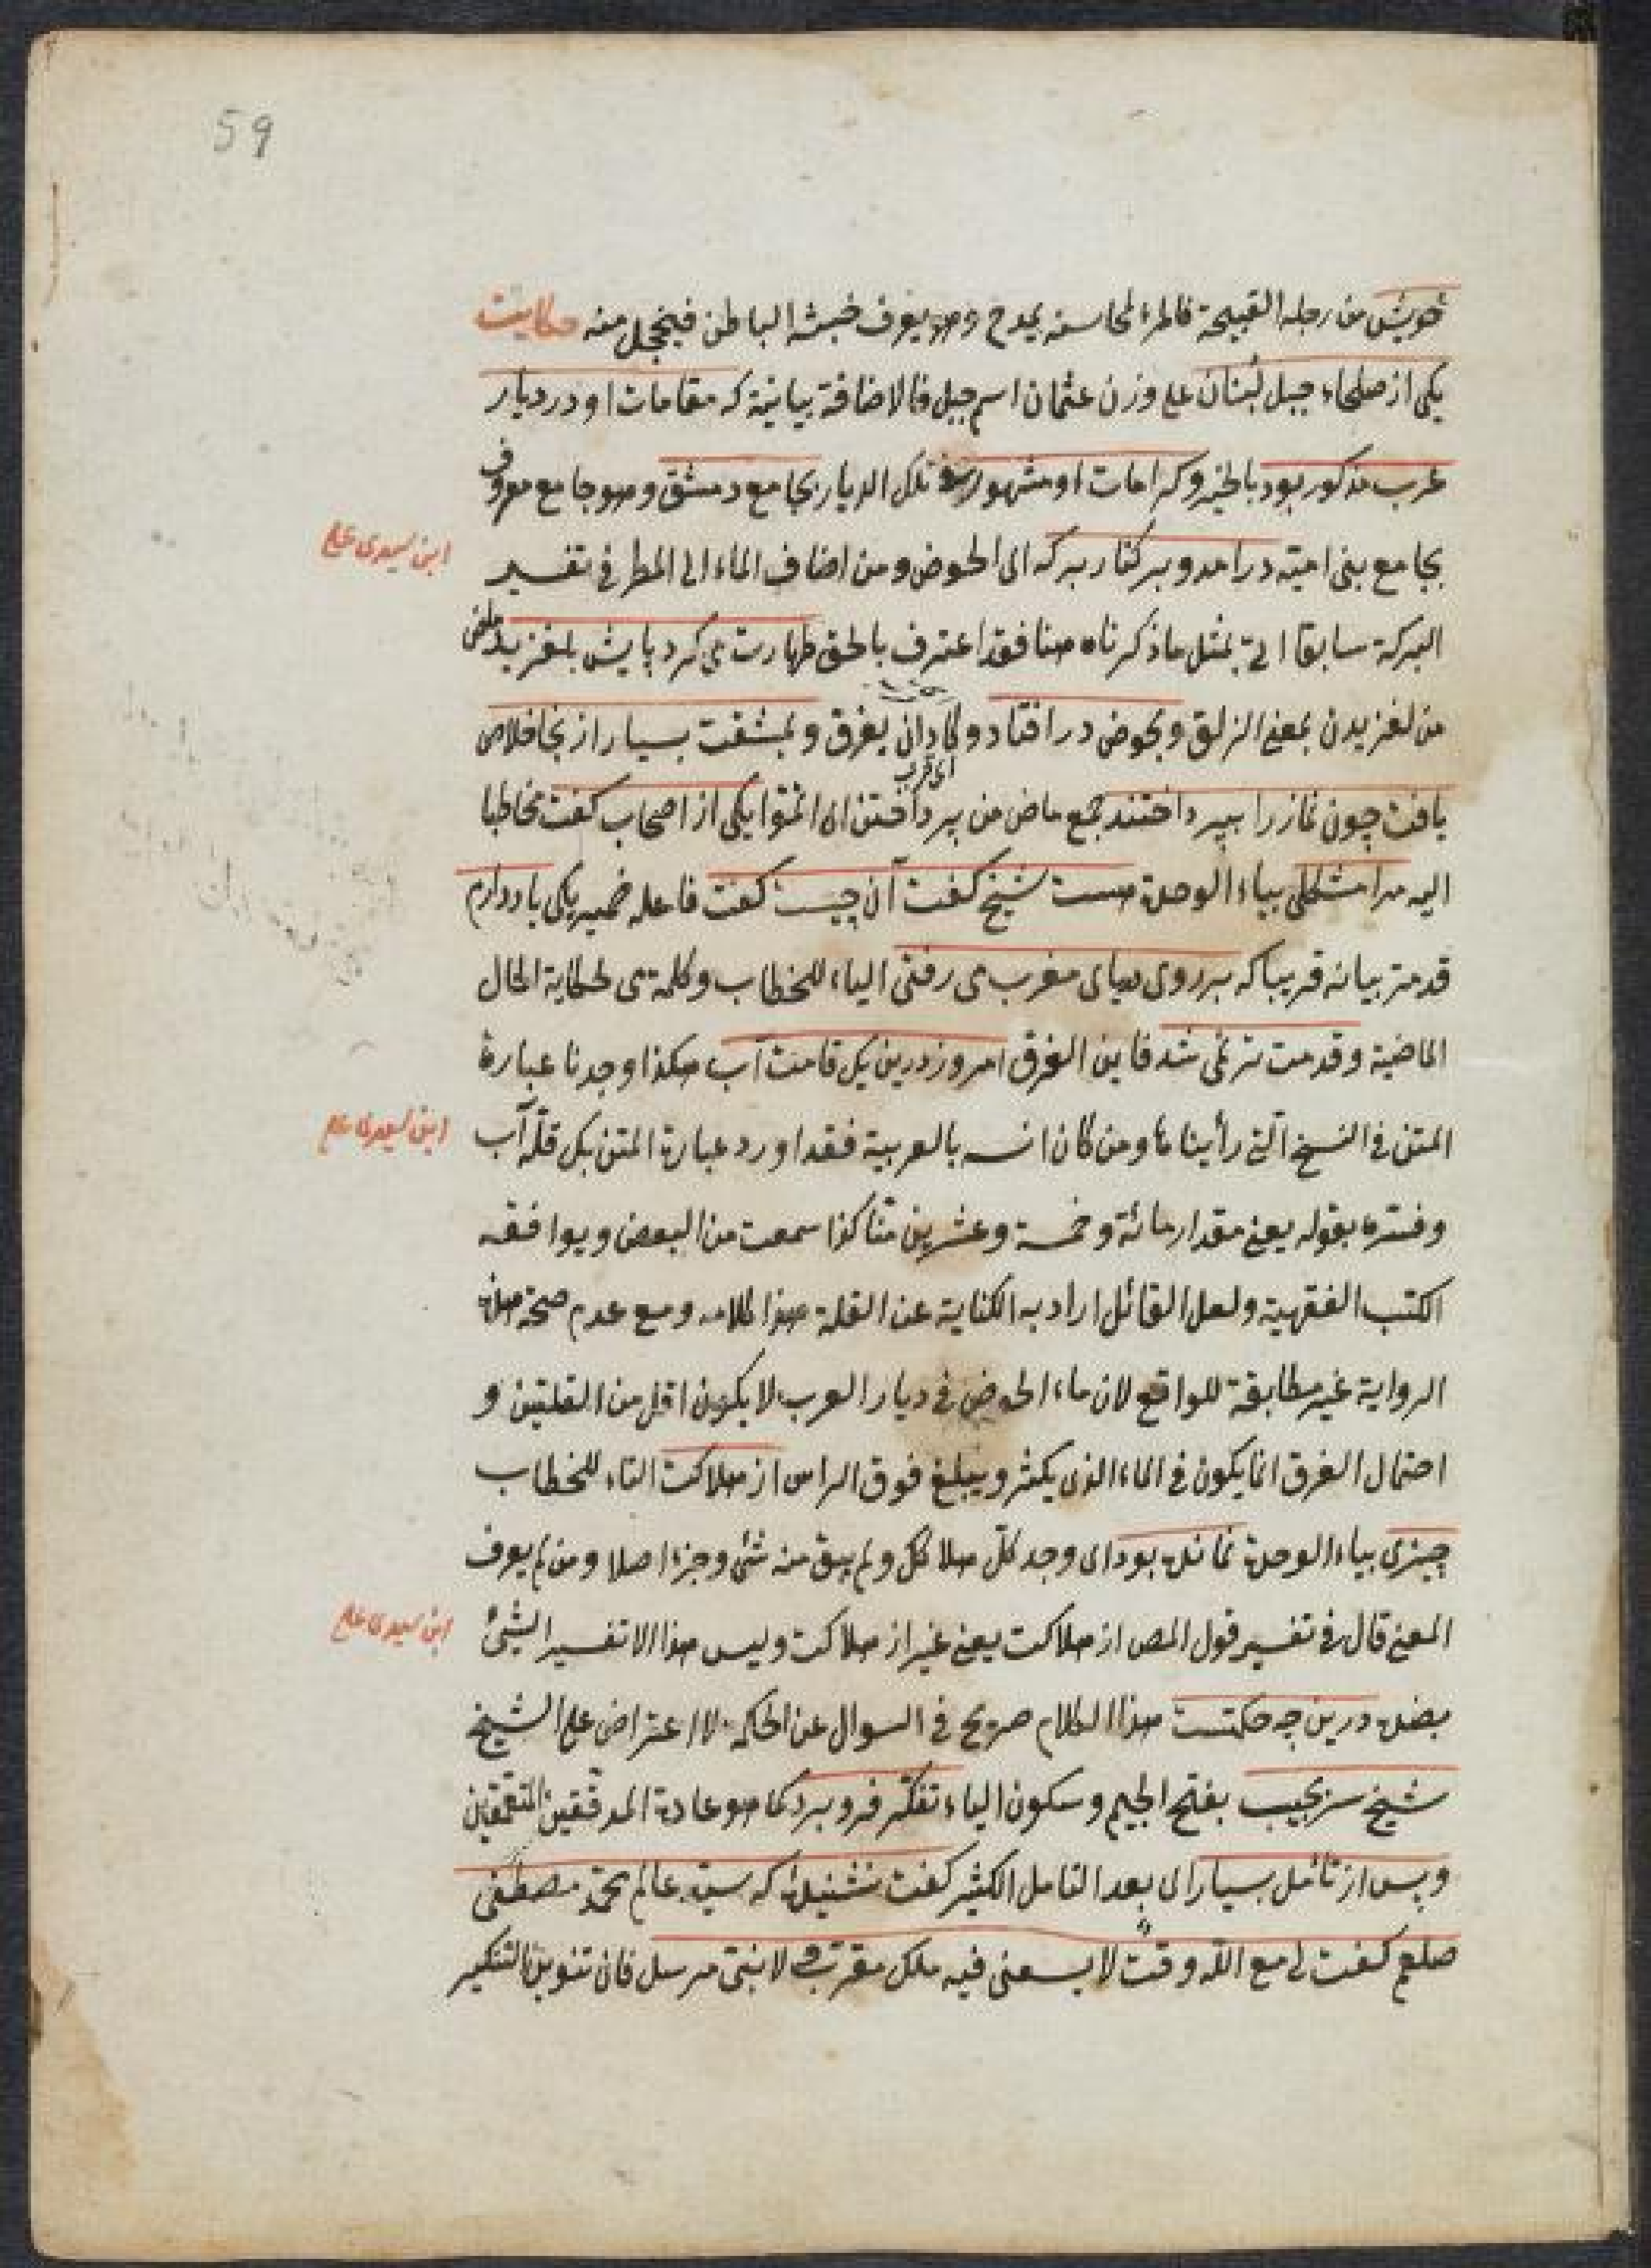 59
خویش من رجله القبیحة فالمرء لمحاسنه یمدح وهو یعرف خبثه الباطن فینخجل منه حکایت
یکی از صلحاء جبل لبنان علی وزن عثمان اسم جبل فالاضافة بیانیة که مقامات او در دیار
عرب مذکور بود بالخیر وکرامات او مشهور فی تلک الدیار بجامع دمشق وهو جامع معروف
بجامع بنی امیة درامد وبر کنار برکه ای الحوض ومن اضاف الماء الی المطر فی تفسیر
ابن سیدی علی
البرکة سابقا اتی بمثل ماذکرناه هنا فقد اعترف بالحق طهارت می کرد پایش بلغزید ماضی
من لغزیدن بمعنی الزلق وبحوض در افتاد وکاد ان یغرق وبمشقت بسیار از آنجا خلاص
ای قرب
یافت چون نماز را بپرداختند جمع ماض من پرداختن ای اتموا یکی از اصحاب گفت مخاطبا
الیه مرا مشکلی بیاء الوحدة هست شیخ گفت آن چیست گفت فاعله ضمیر یکی یاد دارم
قد مر بیانه قریبا که بر روی دریای مغرب می رفتی الیاء للخطاب وکلمة می لحکایة الحال
الماضیة وقدمت تر نمی شد فاین الغرق امروز درین یک قامت آب هکذا وجدنا عبارة
المتن فی النسخ التی رأیناها ومن کان انسه بالعربیة فقد اورد عبارة المتن بیک قلّه آب
ابن سیدی علی
وفسّره بقوله یعنی مقدار مائة وخمسة وعشرین منّا کذا سمعت من البعض ویوافقه
الکتب الفقهیة ولعل القائل اراد به الکنایة عن القلة هذا کلامه ومع عدم صحة هذه
الروایة غیر مطابقة للواقع لان ماء الحوض فی دیار العرب لا یکون اقل من القلتین و
احتمال الغرق انما یکون فی الماء الذی یکثر ویبلغ فوق الراس از هلاکت التاء للخطاب
چیزی بیاء الوحدة نمانده بود ای وجد کلّ هلاکک ولم یبق منه شئ وجزء اصلا ومن لم یعرف
المعنی قال فی تفسیر قول المص از هلاکت یعنی غیر از هلاکت ولیس هذا الا تفسیر الشئ
ابن سیدی علی
بضده درین چه حکمتست هذا الکلام صریح فی السوال عن الحکمة لا اعتراض علی الشیخ
شیخ سر بجیب بفتح الجیم وسکون الیاء تفکّر فرو برد کما هو عادة المدققین المتعمقین
وپس از تأمّل بسیار ای بعد التامل الکثیر گفت نشنیدۀ که سیّد عالم محمّد مصطفی
صلعم گفت لی مع الله وقت لا یسعنی فیه ملک مقرّب ولا نبیّ مرسل فان تنوین التنکیر